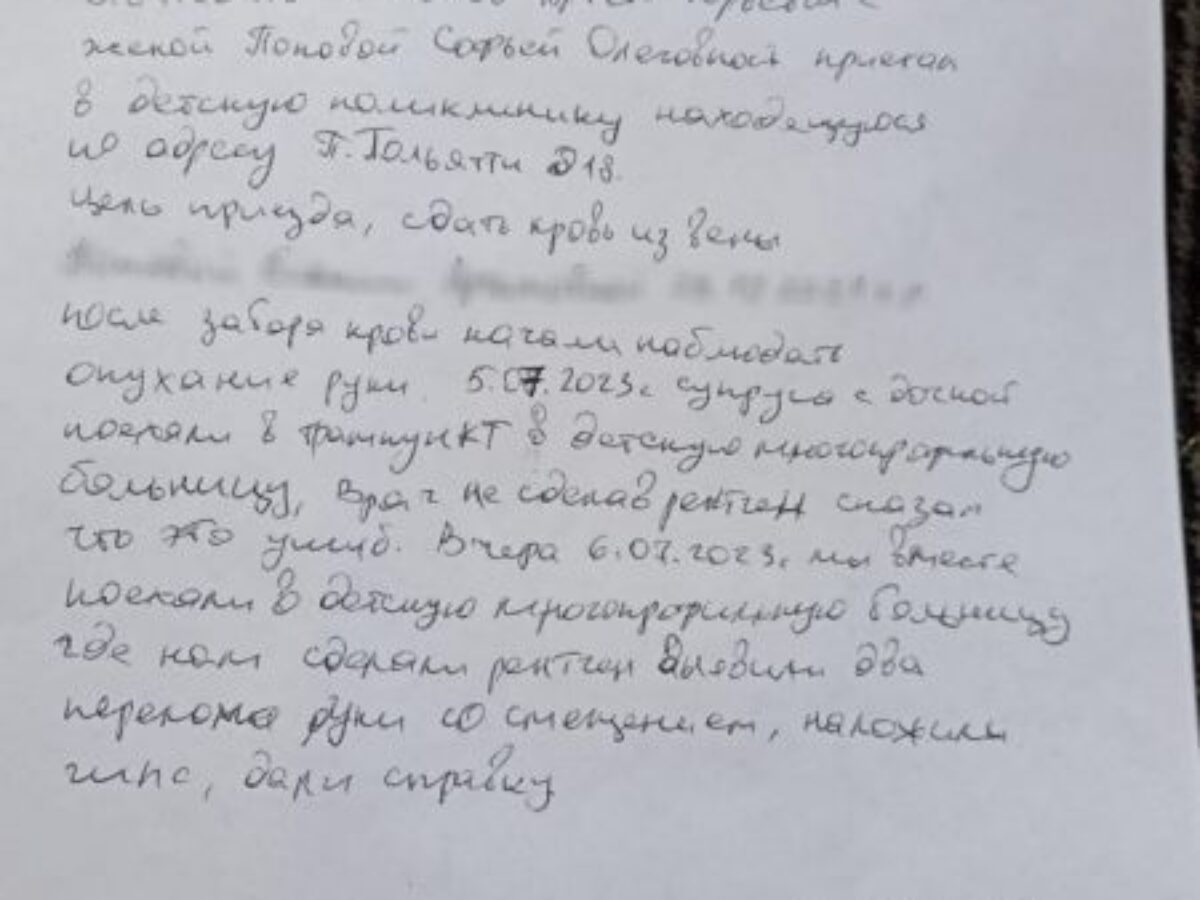 женой Поповой Софьей Олеговной приехал
в детскую поликлинику находящуюся
по адресу П.Тольятти 18.
цель приезда, сдать кровь из вены
после забора крови начали наблюдать
опухание руки. 5.07.2023г супруга с дочкой
поехали в травмпункт в детскую многопрофильную
больницу, врач не сделав рентген сказал
что это ушиб. Вчера 6.07.2023г мы вместе
поехали в детскую многопрофильную больницу
где нам сделали рентген выявили два
перелома руки со смещением, наложили
гипс, дали справку